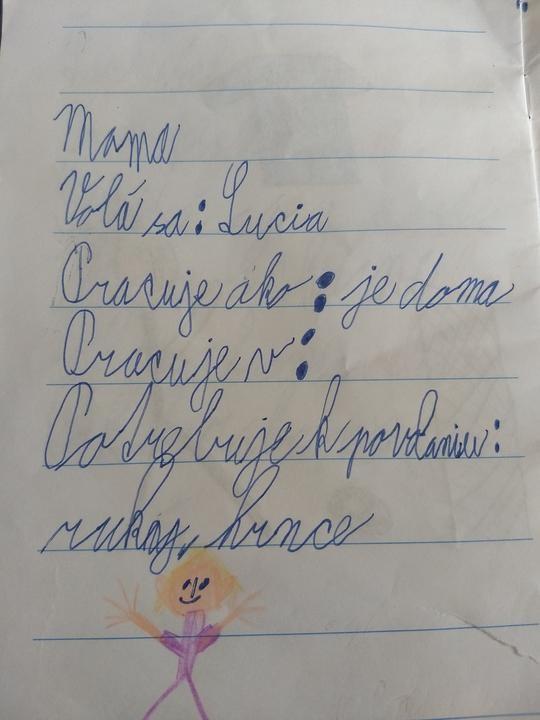 Mama
Volá sa: Lucia
Pracuje ako: je doma
Pracuje v:
Potrebuje k povolaniu:
ruky, hrnce